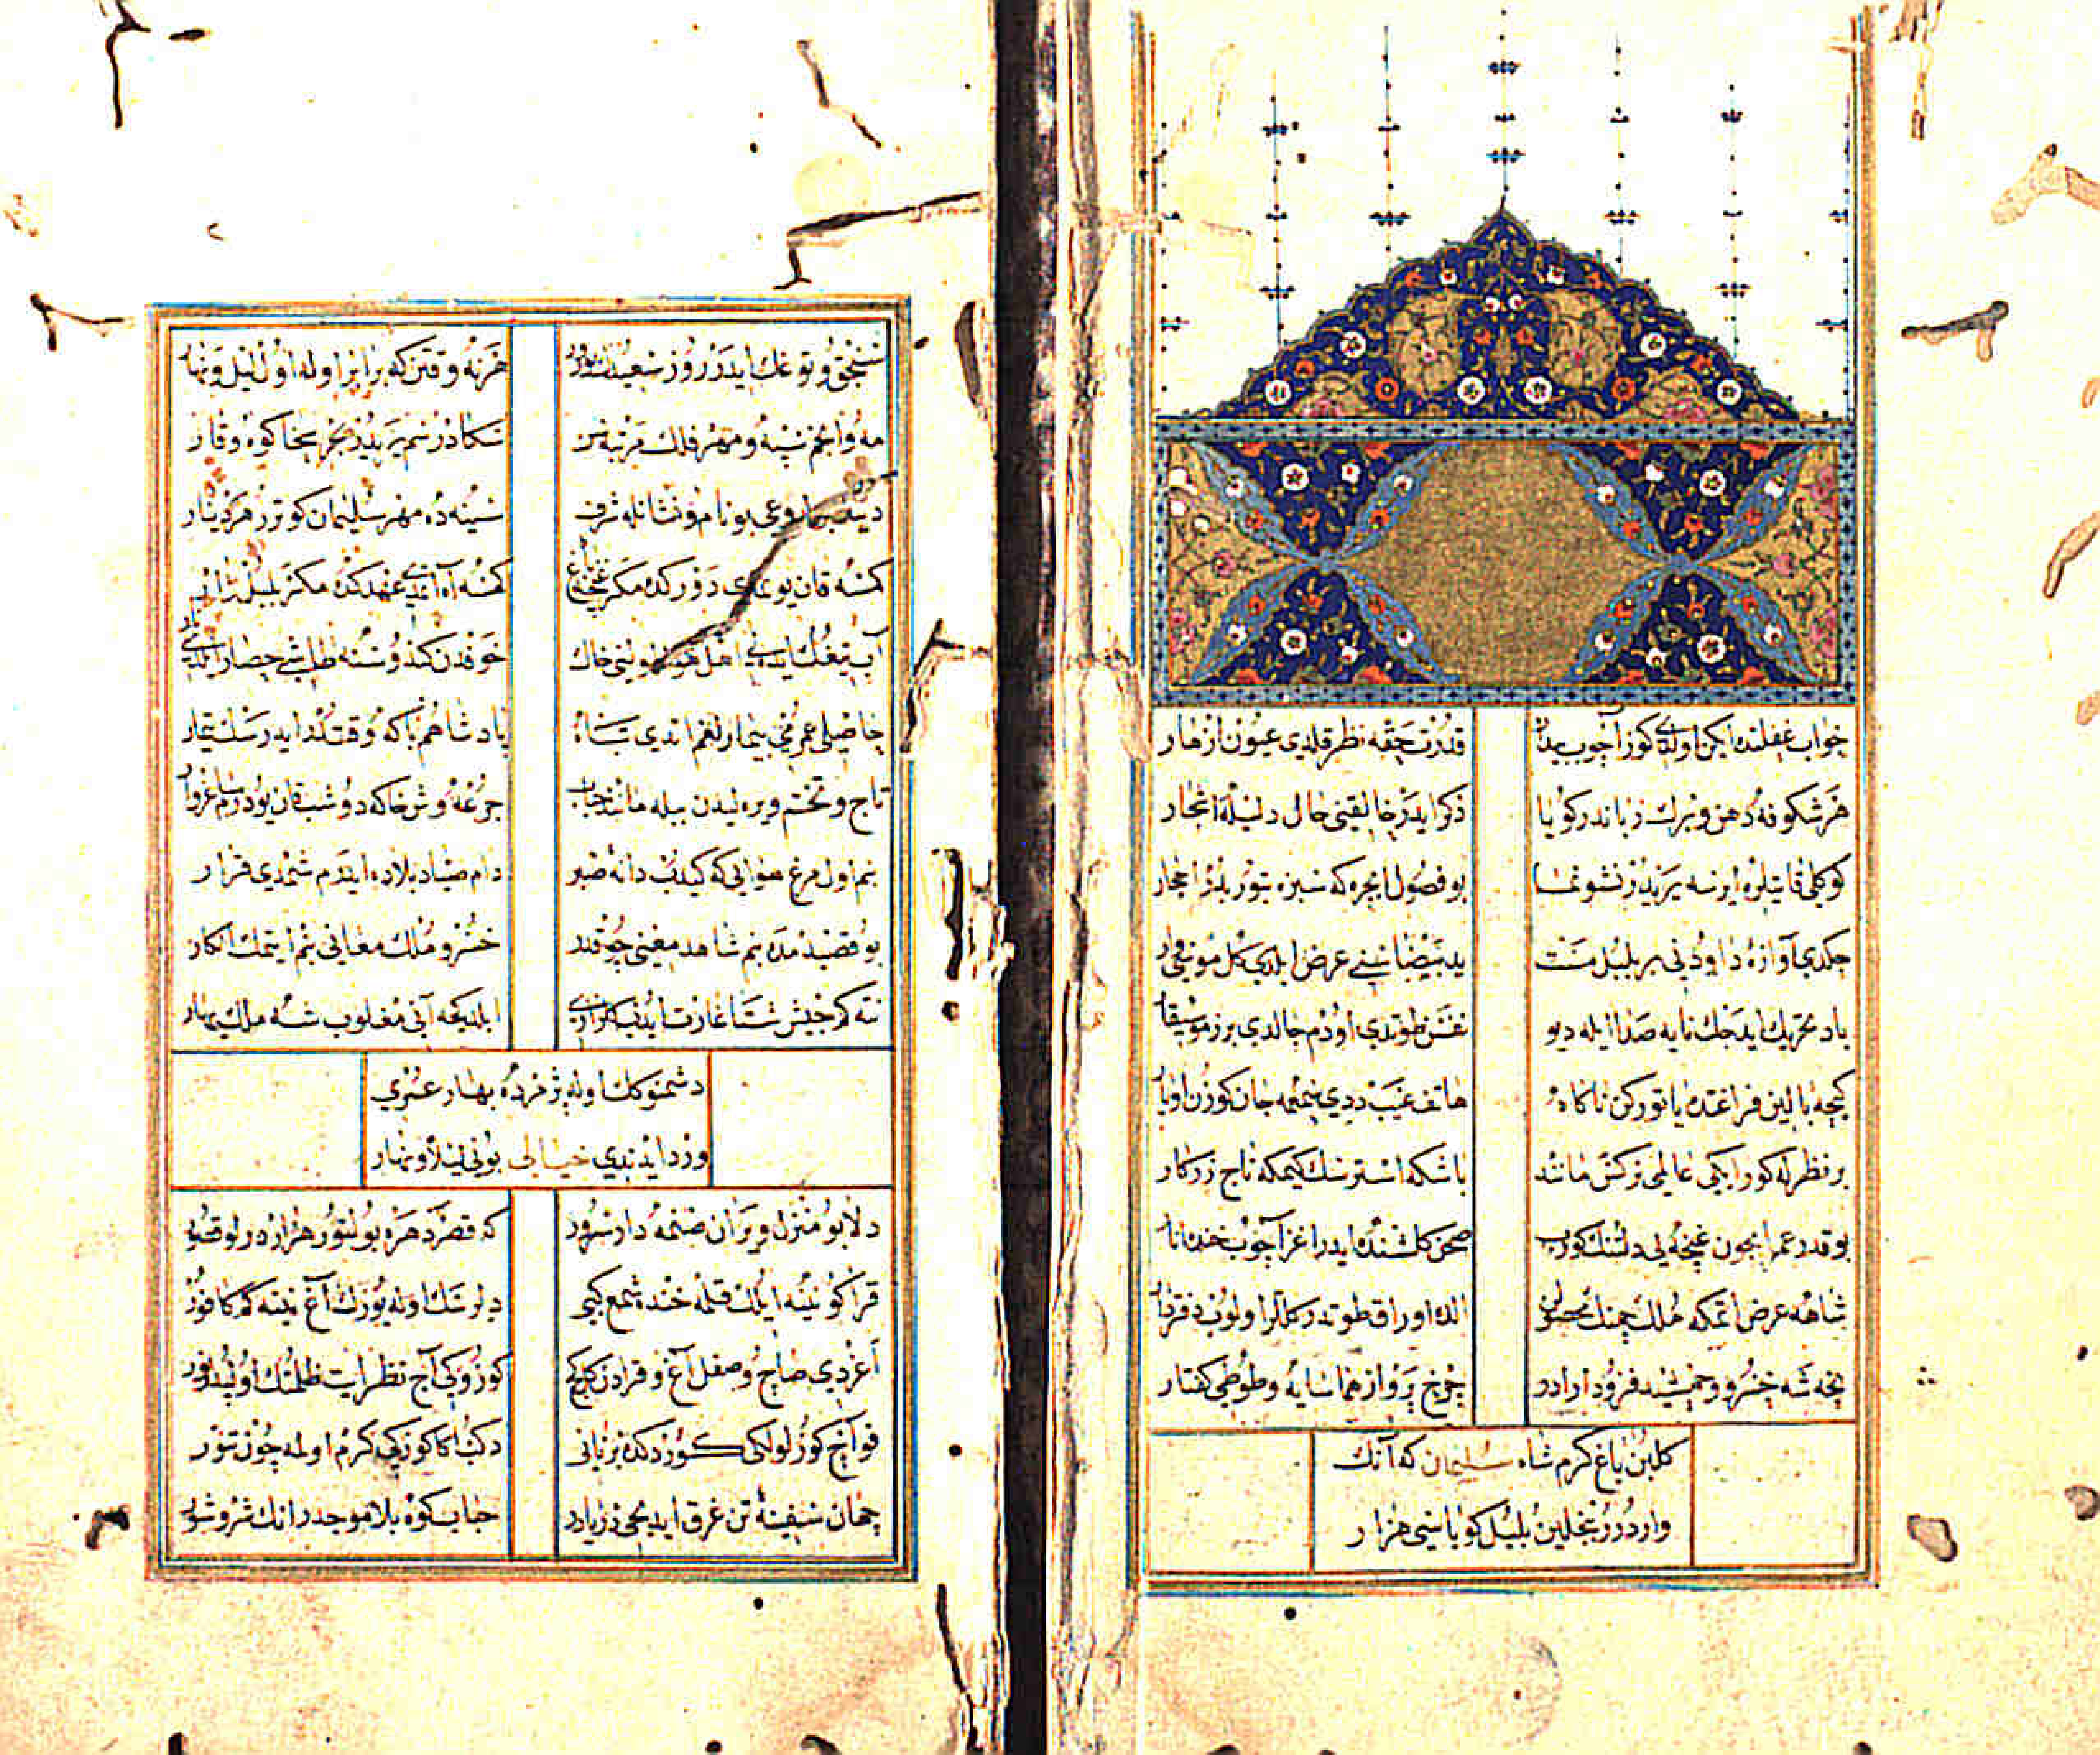 خواب غفلتده ایکن اولدی کوز آچوب بیدار
قدرت حقه نظر قلدی عیون ازهار
هر شکوفه دهن و برك زباندر کویا
ذکر ایدر خالقنی حال دلیله اشجار
کوکلی قاتیلره ایرسه یریدر نشو نما
بو فصول ایچره که سبزه بتورر احجار
چکدی آوازهٔ داودنی بر بلبل مست
ید بیضاسنی عرض ایلدی کل موسی وار
باد تحریك ایدجك نایه صدا ایله دیو
نفس طوتدی اودم چالدی بر موسیقار
کیجه بالین فراغتده یاتورکن ناکاه
هاتف غیب ددی سمعمه جان کوزن اویار
بر نظرله کوره کی عالمی نرکس مانند
باشکه استرسك کیمکه تاج زرکار
بو قدر عمر ایچون غنچه یی دلتنك کورب
صحن کلشنده ایدر اغز آچوب خنده انار
شاهه عرض اتمکه ملك چمنك محصولن
الده اوراق طوتدر کللر اولوب دفتردار
نیجه شه خسرو و جمشید فر و دارا در
چرخ پرواز هما سایه و طوطی کفتار
کلبن باغ کرم شاه سلیمان که آنك
واردرر نخلین بلبل کویاسی هزار
سنجق و توغك ایدر روز سعید نوروز
هر نه وقتن که برابر اوله اول لیل و نهار
مه و انجم سپه و مهر فلك مرتبه سن
سکا درسم یریدر بحر سخا کوه وقار
نام و نشانله شرف
سینه ده مهر سلیمان کوترر هر دینار
کمسه قان یوتمدی دورکده مکر غنچهٔ باغ
کمسه آه اتمدی عهدکده مکر بلبل زار
آب تیغك ایدلی اهل
خوفدن کندوسنه طاش حصار اتدی
حاصلی عمرمی بیمارلغم اتدی تباه
پادشاهم نه وقتدر ایدرسك تیمار
تاج و تختم ویره لیدن یله مانند حباب
جرعه وش خاکه دوشب قان یودرم ساغروار
بنم اول مرغ هوایی که کیدب دانه صبر
دام صیاد بلاده ایدرم شمدی قرار
بو قصیدمده بنم شاهد معنی چوقدر
خسرو ملك معانی بنم ایتمك انکار
نته کم جیش شتا غارت ایدب کلزاری
ایلدکجه آنی مغلوب شه ملك بهار
دشمنوکك اوله پژمرده بهار عمری
ورد ایدندی خیالی بونی لیلا و نهار
دلا بو منزل ویران صنمه دار سرور
که قصر دهره بولنور هزار درلو قصور
قراکو نینه ایلك قلمه خنده شمع کبی
دلرسك اوله یوزك آغ ینه کم کافور
آغردی صاچ و صقل آغ و قرادن کچ
کوزوکی آچ نظر ایت ظلمتك اوکیدر نور
قو آچ کوزلولکی کوزدکده بر نانی
دکب اکا کوزکی کرم اولمه چون تنور
جهان سفینهٔ تن غرق ایدیجی دریادر
حباب کوه بلا موجدر انك شر و شور